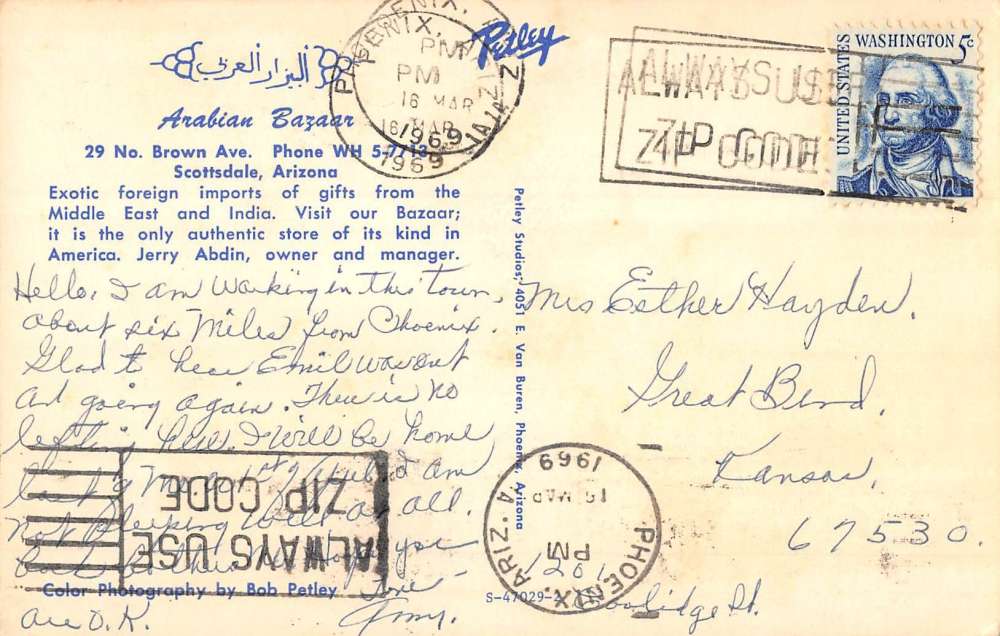 البزار العربي
Arabian Bazaar
29 No. Brown Ave. Phone WH 5-7713
Scottsdale, Arizona
Exotic foreign imports of gifts from the
Middle East and India. Visit our Bazaar;
it is the only authentic store of its kind in
America. Jerry Abdin, owner and manager.
Hello, I am working in this town,
about six miles from Phoenix.
Glad to hear Emil was out
and going again. There is no
here. I will be home
last of
I am
not sleeping well at all.
Hope you
are O.K.
Color Photography by Bob Petley
Petley
Petley Studios, 4051 E. Van Buren, Phoenix, Arizona
S-47029-2
PHOENIX, ARIZ
PM
16 MAR
1969
PHOENIX, ARIZ
PM
16 MAR
1969
ALWAYS USE
ZIP CODE
ALWAYS USE
ZIP CODE
UNITED STATES
WASHINGTON 5c
Mrs Esther Hayden.
Great Bend.
Kansas,
67530.
1201 Coolidge St.
PHOENIX, ARIZ. 4
PM
MAR
1969
ALWAYS USE
ZIP CODE